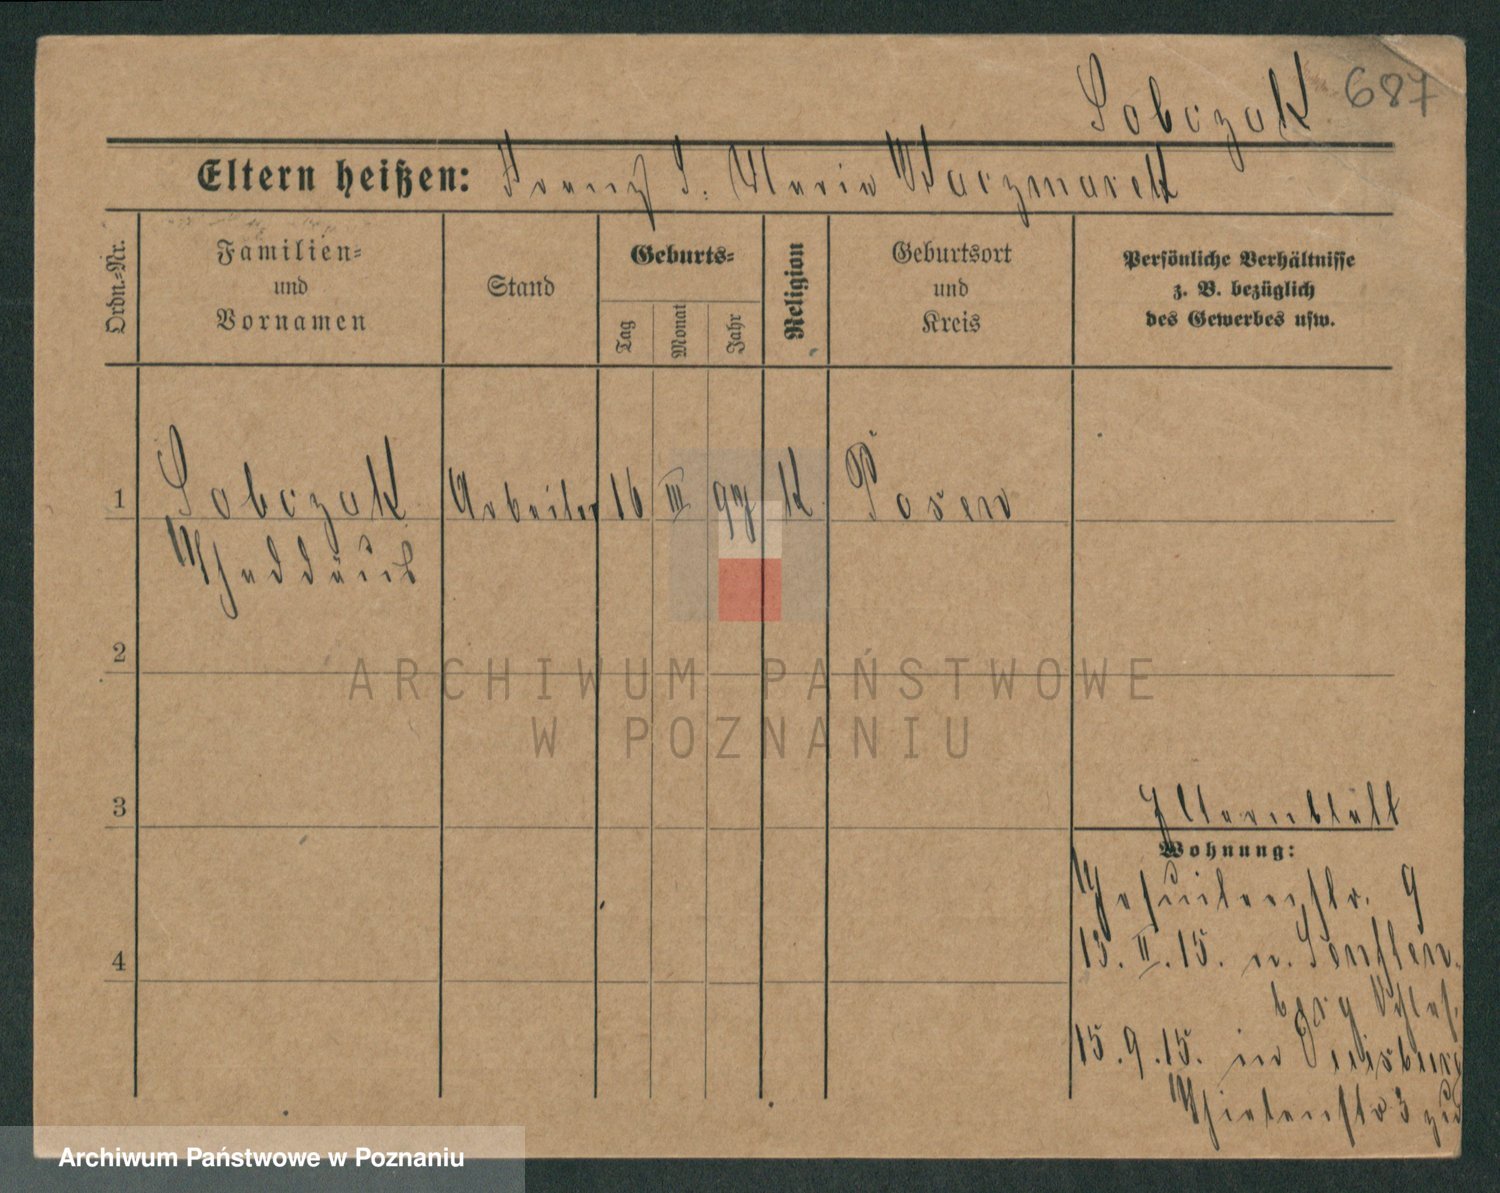 Sobczak 687
Eltern heißen: Franz S. Maria Kaczmarek
Ordn.=Nr.
Familien=
und
Vornamen
Stand
Geburts=
Tag
Monat
Jahr
Religion
Geburtsort
und
Kreis
Persönliche Verhältnisse
z. B. bezüglich
des Gewerbes usw.
1 Sobczak Arbeiter 16 III 97 K Posen
Thaddäus
2
ARCHIWUM PAŃSTWOWE
W POZNANIU
3
Wohnung:
Jesuitenstr. 9
13. II. 15. n. Senften
berg Schles.
4
15. 9. 15. in Duisburg
3
Archiwum Państwowe w Poznaniu